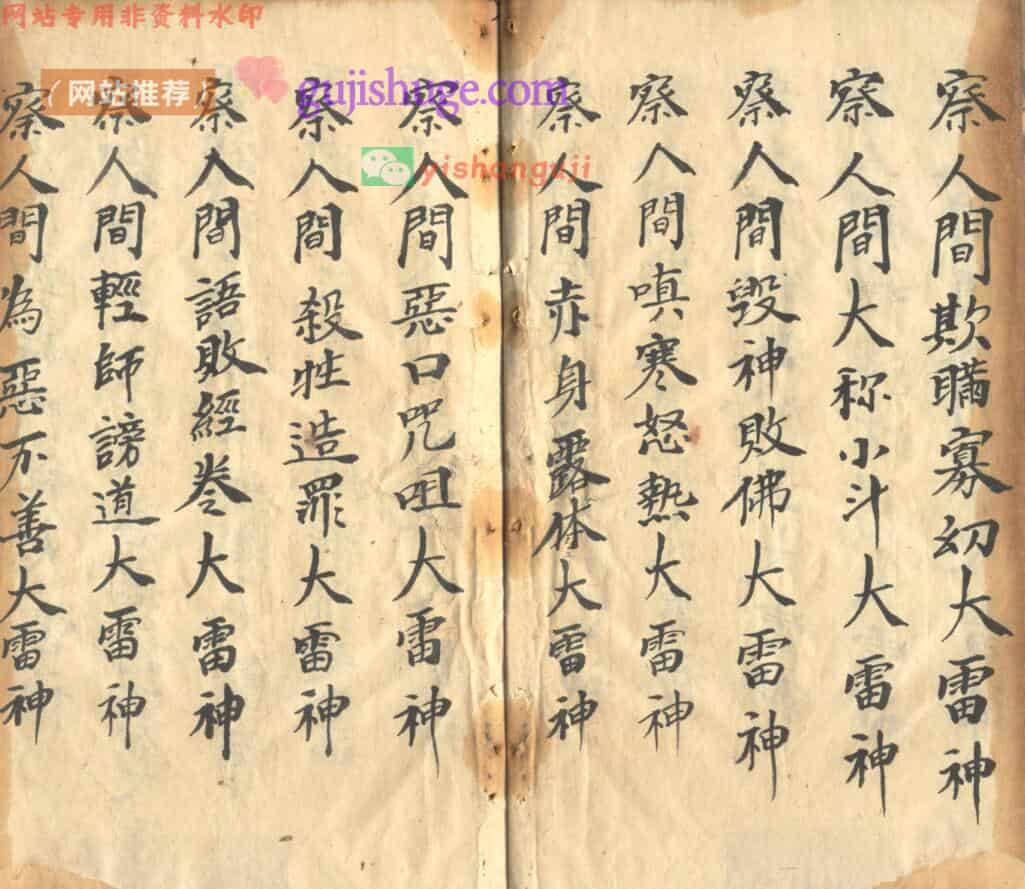 网站专用非资料水印
(网站推荐)
gujishuge.com
yishanguji
察人間欺瞞寡幼大雷神
察人間大称小斗大雷神
察人間毀神敗佛大雷神
察人間嗔寒怒熱大雷神
察人間赤身露体大雷神
察人間惡口咒咀大雷神
察人間殺牲造罪大雷神
察人間語敗經卷大雷神
察人間輕師謗道大雷神
察人間為惡不善大雷神